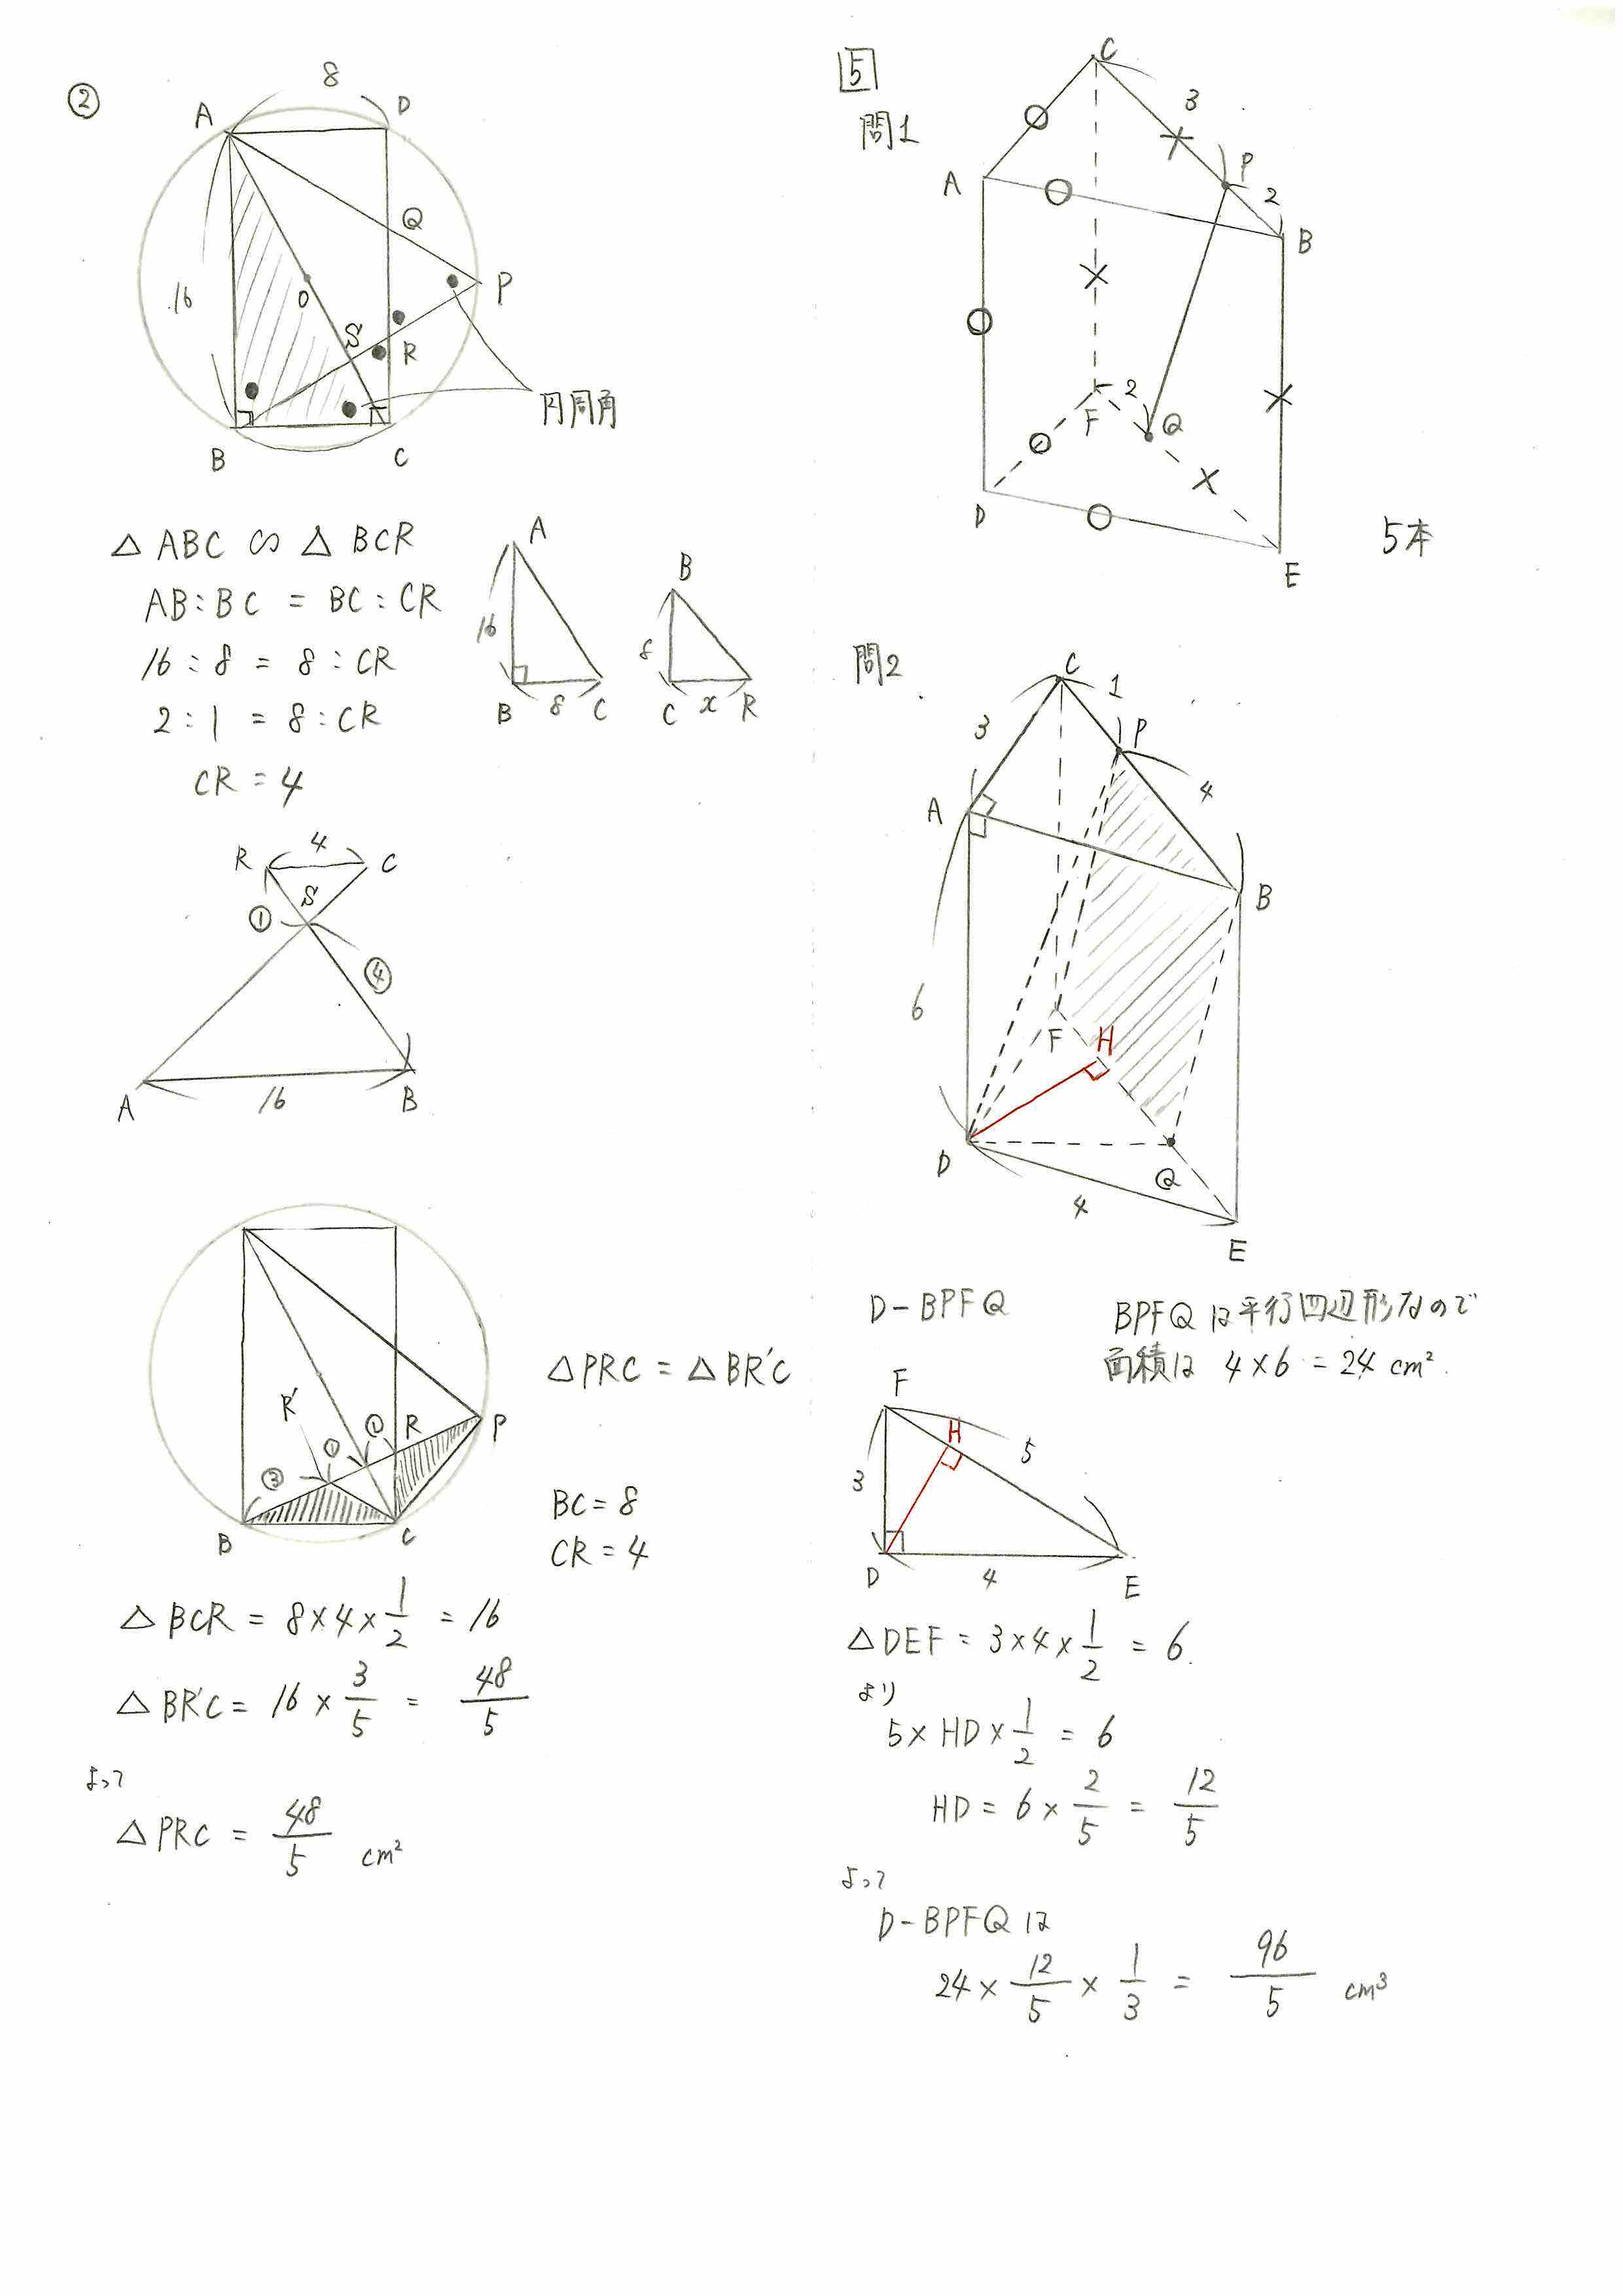 ②
8
A
D
Q
16
O
P
S
R
円周角
B
C
△ABC ∽ △BCR
AB:BC = BC:CR
16:8 = 8:CR
2:1 = 8:CR
CR = 4
A
16
B
8
C
B
8
C
x
R
R
4
C
S
①
④
A
16
B
R'
①
①
R
P
③
B
C
△PRC = △BR'C
BC = 8
CR = 4
△BCR = 8×4×1/2 = 16
△BR'C = 16 × 3/5 = 48/5
よって
△PRC = 48/5 cm²
5
問1
C
3
A
P
2
B
2
F
Q
D
E
5本
問2
C
1
3
P
A
4
B
6
F
H
D
Q
4
E
D-BPFQ
BPFQは平行四辺形なので
面積は 4×6 = 24 cm².
F
H
5
3
D
4
E
△DEF = 3×4×1/2 = 6.
より
5×HD×1/2 = 6
HD = 6 × 2/5 = 12/5
よって
D-BPFQは
24 × 12/5 × 1/3 = 96/5 cm³